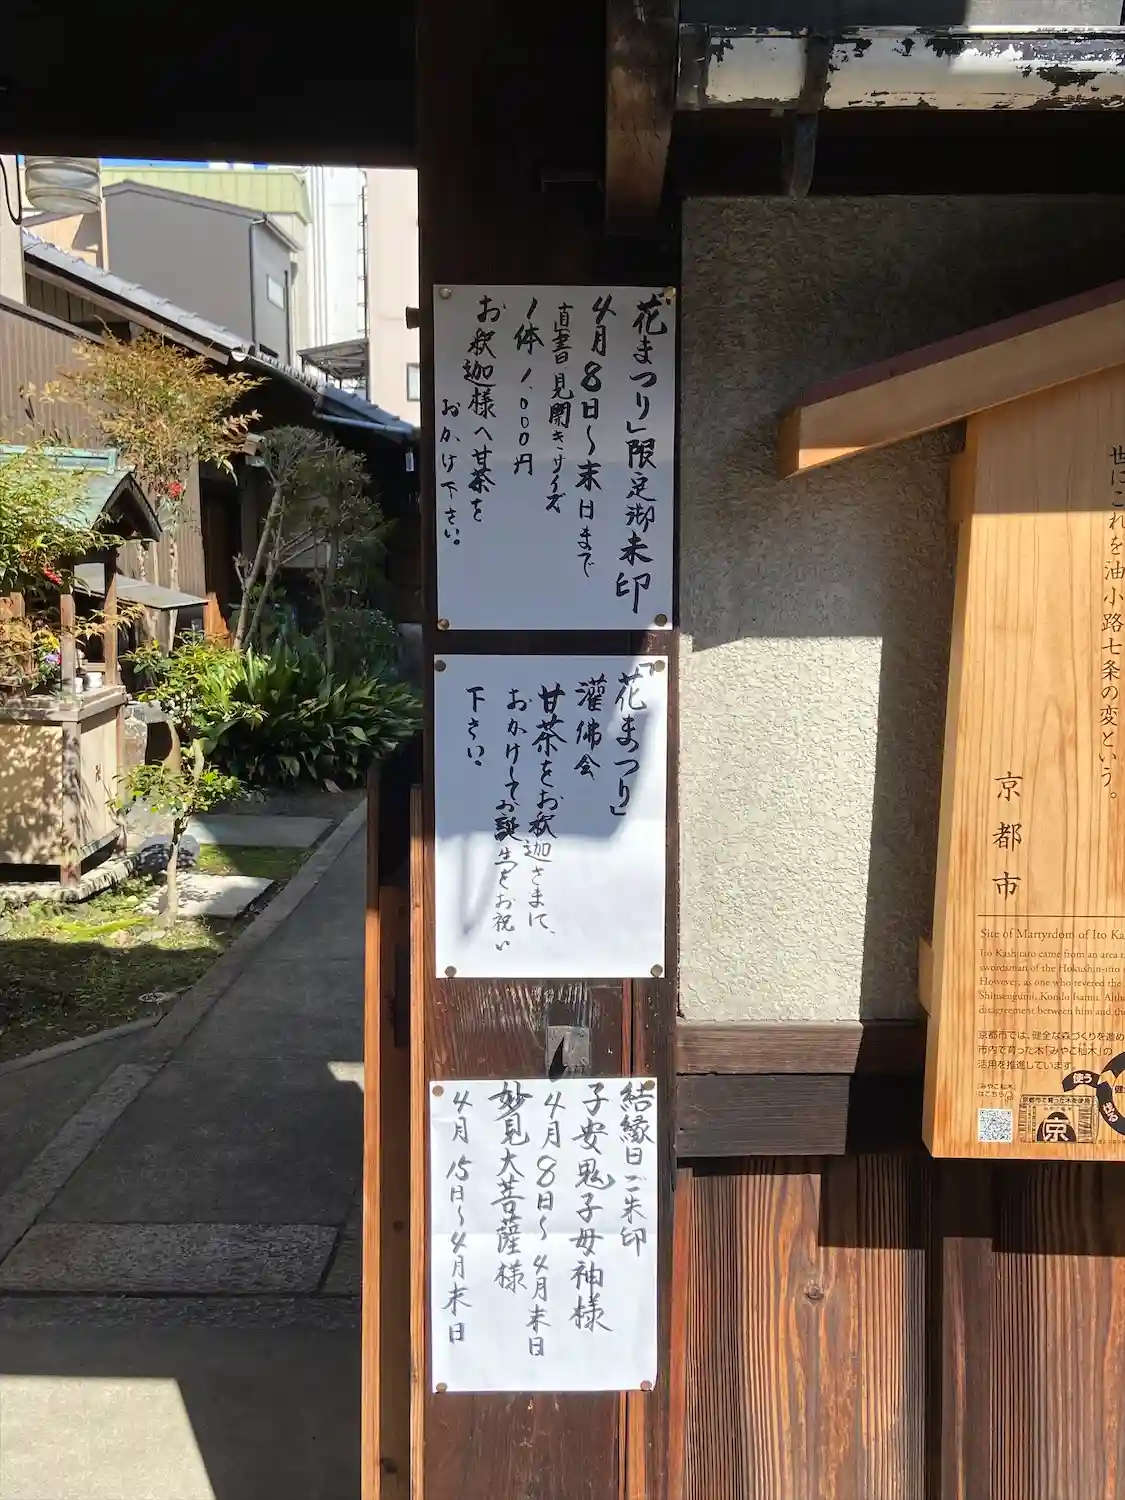 花まつり」限定御朱印
4月8日～末日まで
直書 見開きサイズ
1体 1.000円
お釈迦様へ甘茶を
おかけ下さい。
「花まつり」
灌佛会
甘茶をお釈迦さまに、
おかけしてお誕生をお祝い
下さい。
結縁日ご朱印
子安鬼子母神様
4月8日～4月末日
妙見大菩薩様
4月15日～4月末日
世にこれを油小路七条の変という。
京都市
Site of Martyrdom of Ito Ka
Ito Kashitaro came from an area
swordsman of the Hokushin-itto
However, as one who revered the
Shinsengumi, Kondo Isami. Alth
disagreement between him and the
京都市では、健全な森づくりを進め
市内で育った木「みやこ杣木」の
活用を推進しています。
「みやこ杣木」
はこちら
京都市で育った木を使用
京
使う